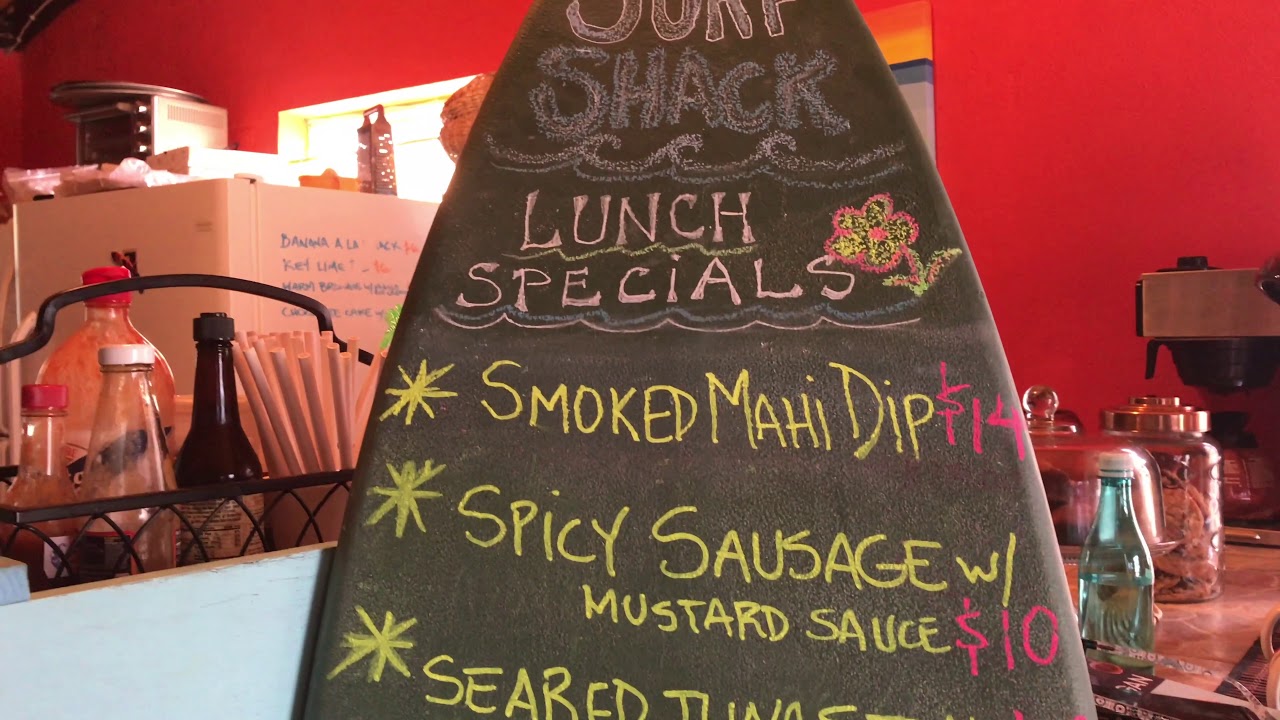 SURF
SHACK
LUNCH
SPECIALS
* SMOKED MAHI DIP $14
* SPICY SAUSAGE W/
MUSTARD SAUCE $10
* SEARED TUNA
BANANA A LA
KEY LIME
WARM BROWNIE W/
CHOCOLATE CAKE W/